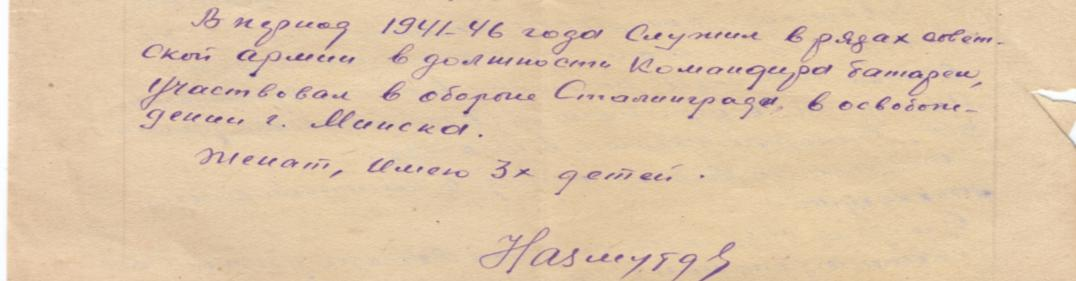 В период 1941-46 года служил в рядах совет-
ской армии в должности командира батареи,
участвовал в обороне Сталинграда, в освобож-
дении г. Минска.
Женат, имею 3х детей.